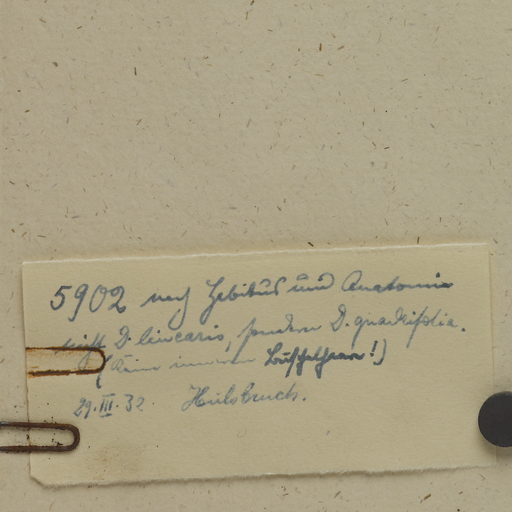 5902 nach Habitus und Anatomie
nicht D. linearis, sondern D. quadrifolia.
(Keine inneren Büschelhaare!)
29.III.32 Hülsbruch.